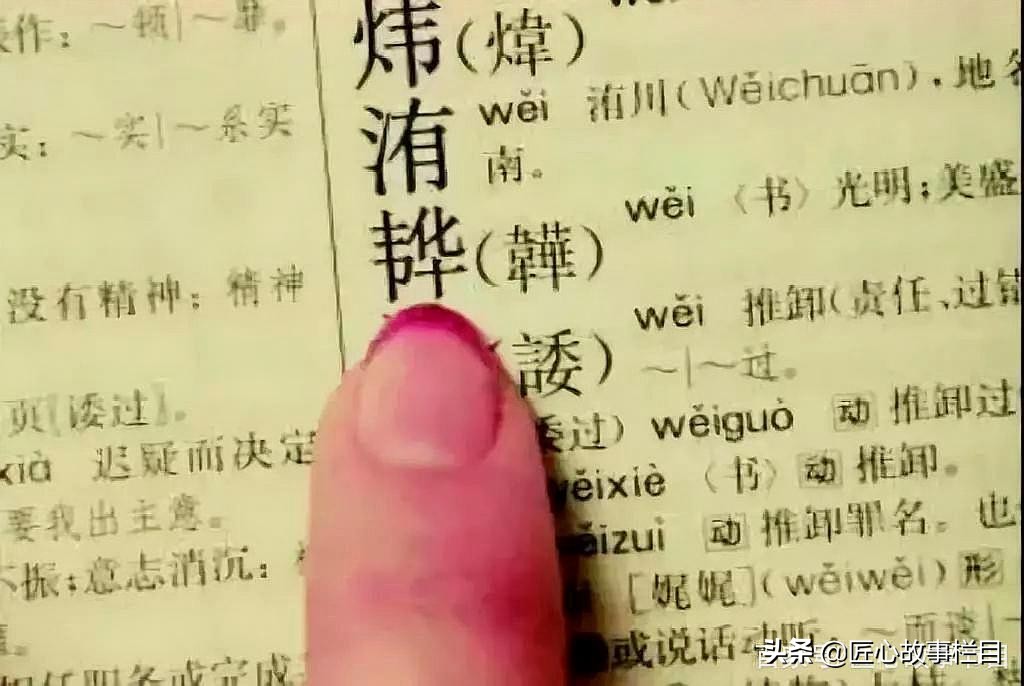 作：～顿|～靡。
实：～实|～系实
没有精神；精神
页〖诿过〗。
迟疑而决定
要我出主意。
不振；意志消沉：
炜(煒)
洧 wěi 洧川(Wěichuān)，地名
南。
韡(韡) wěi 〈书〉光明；美盛
(諉) wěi 推卸(责任、过错
～|～过。
委过) wěiguò 动 推卸过
wěixiè 〈书〉动 推卸。
ěizuì 动 推卸罪名。也
[娓娓](wěiwěi) 形
或说话动听：～而谈|～
头条 @匠心故事栏目